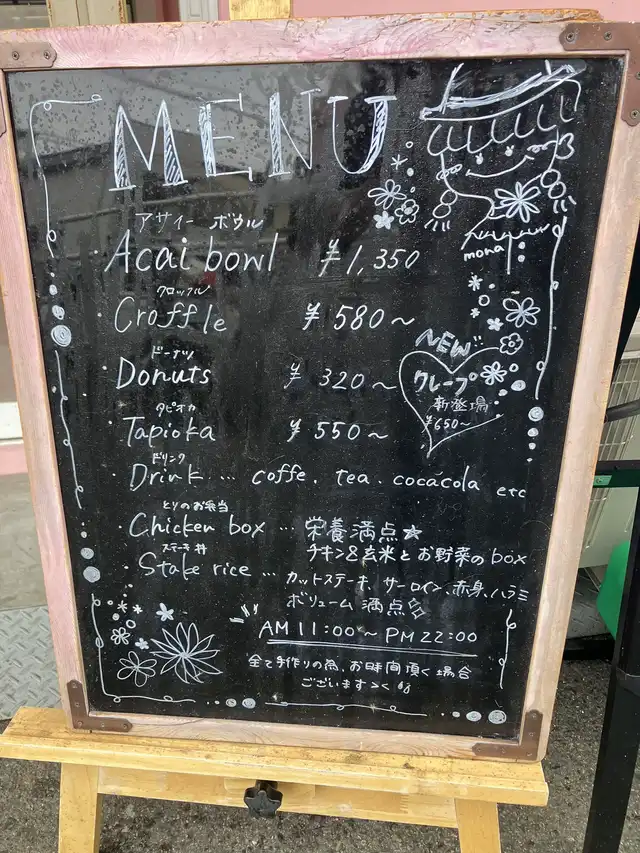 MENU
mona
アサイー ボウル
Acai bowl ¥1,350
クロッフル
Croffle ¥580~
NEW
クレープ
新登場
¥650~
ドーナツ
Donuts ¥320~
タピオカ
Tapioka ¥550~
ドリンク
Drink … coffe. tea. cocacola etc
とりのお弁当
Chicken box … 栄養満点☆
チキン&玄米とお野菜のbox
ステーキ丼
Stake rice … カットステーキ、サーロイン、赤身、ハラミ
ボリューム満点
AM 11:00~PM 22:00
全て手作りの為、お時間頂く場合
ございます